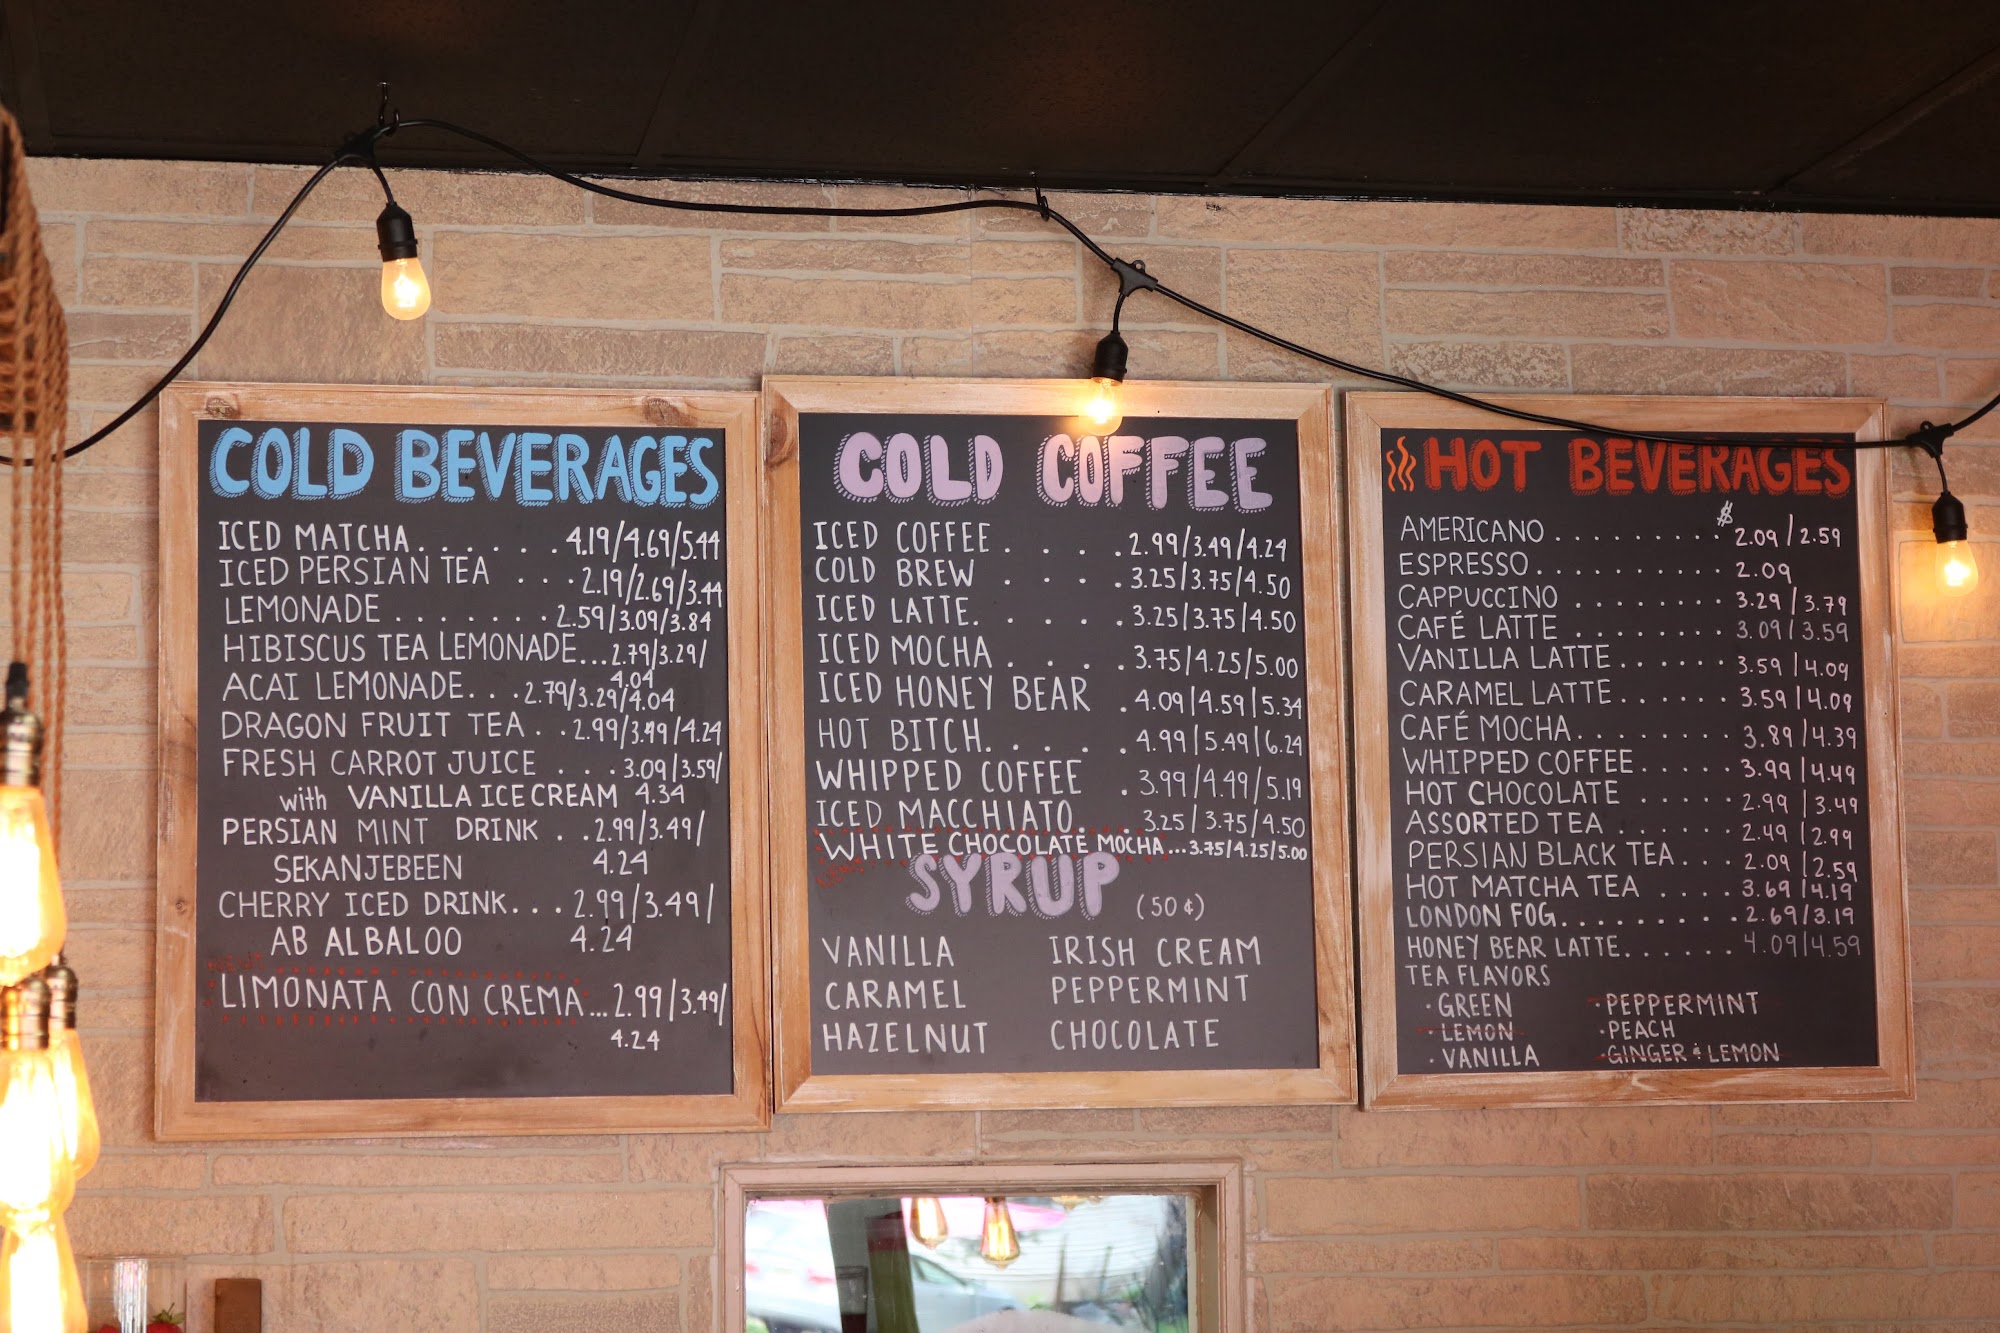 COLD BEVERAGES
ICED MATCHA . . . . . . 4.19/4.69/5.44
ICED PERSIAN TEA . . . 2.19/2.69/3.44
LEMONADE . . . . . . . 2.59/3.09/3.84
HIBISCUS TEA LEMONADE...2.79/3.29/
4.04
ACAI LEMONADE...2.79/3.29/4.04
DRAGON FRUIT TEA . . 2.99/3.49/4.24
FRESH CARROT JUICE . . . 3.09/3.59/
with VANILLA ICE CREAM 4.34
PERSIAN MINT DRINK . . 2.99/3.49/
SEKANJEBEEN 4.24
CHERRY ICED DRINK... 2.99/3.49/
AB ALBALOO 4.24
LIMONATA CON CREMA... 2.99/3.49/
4.24
COLD COFFEE
ICED COFFEE . . . . 2.99/3.49/4.24
COLD BREW . . . . 3.25/3.75/4.50
ICED LATTE. . . . . 3.25/3.75/4.50
ICED MOCHA . . . . 3.75/4.25/5.00
ICED HONEY BEAR . 4.09/4.59/5.34
HOT BITCH. . . . . 4.99/5.49/6.24
WHIPPED COFFEE . 3.99/4.49/5.19
ICED MACCHIATO. . . 3.25/3.75/4.50
WHITE CHOCOLATE MOCHA...3.75/4.25/5.00
SYRUP (50¢)
VANILLA IRISH CREAM
CARAMEL PEPPERMINT
HAZELNUT CHOCOLATE
HOT BEVERAGES
$
AMERICANO . . . . . . . . . 2.09/2.59
ESPRESSO . . . . . . . . . . 2.09
CAPPUCCINO . . . . . . . . 3.29/3.79
CAFÉ LATTE . . . . . . . . 3.09/3.59
VANILLA LATTE . . . . . . 3.59/4.09
CARAMEL LATTE . . . . . . 3.59/4.09
CAFÉ MOCHA. . . . . . . . 3.89/4.39
WHIPPED COFFEE. . . . . 3.99/4.49
HOT CHOCOLATE . . . . . 2.99/3.49
ASSORTED TEA . . . . . . 2.49/2.99
PERSIAN BLACK TEA. . . 2.09/2.59
HOT MATCHA TEA . . . . 3.69/4.19
LONDON FOG. . . . . . . . . 2.69/3.19
HONEY BEAR LATTE. . . . . . 4.09/4.59
TEA FLAVORS
· GREEN · PEPPERMINT
· LEMON · PEACH
· VANILLA · GINGER & LEMON